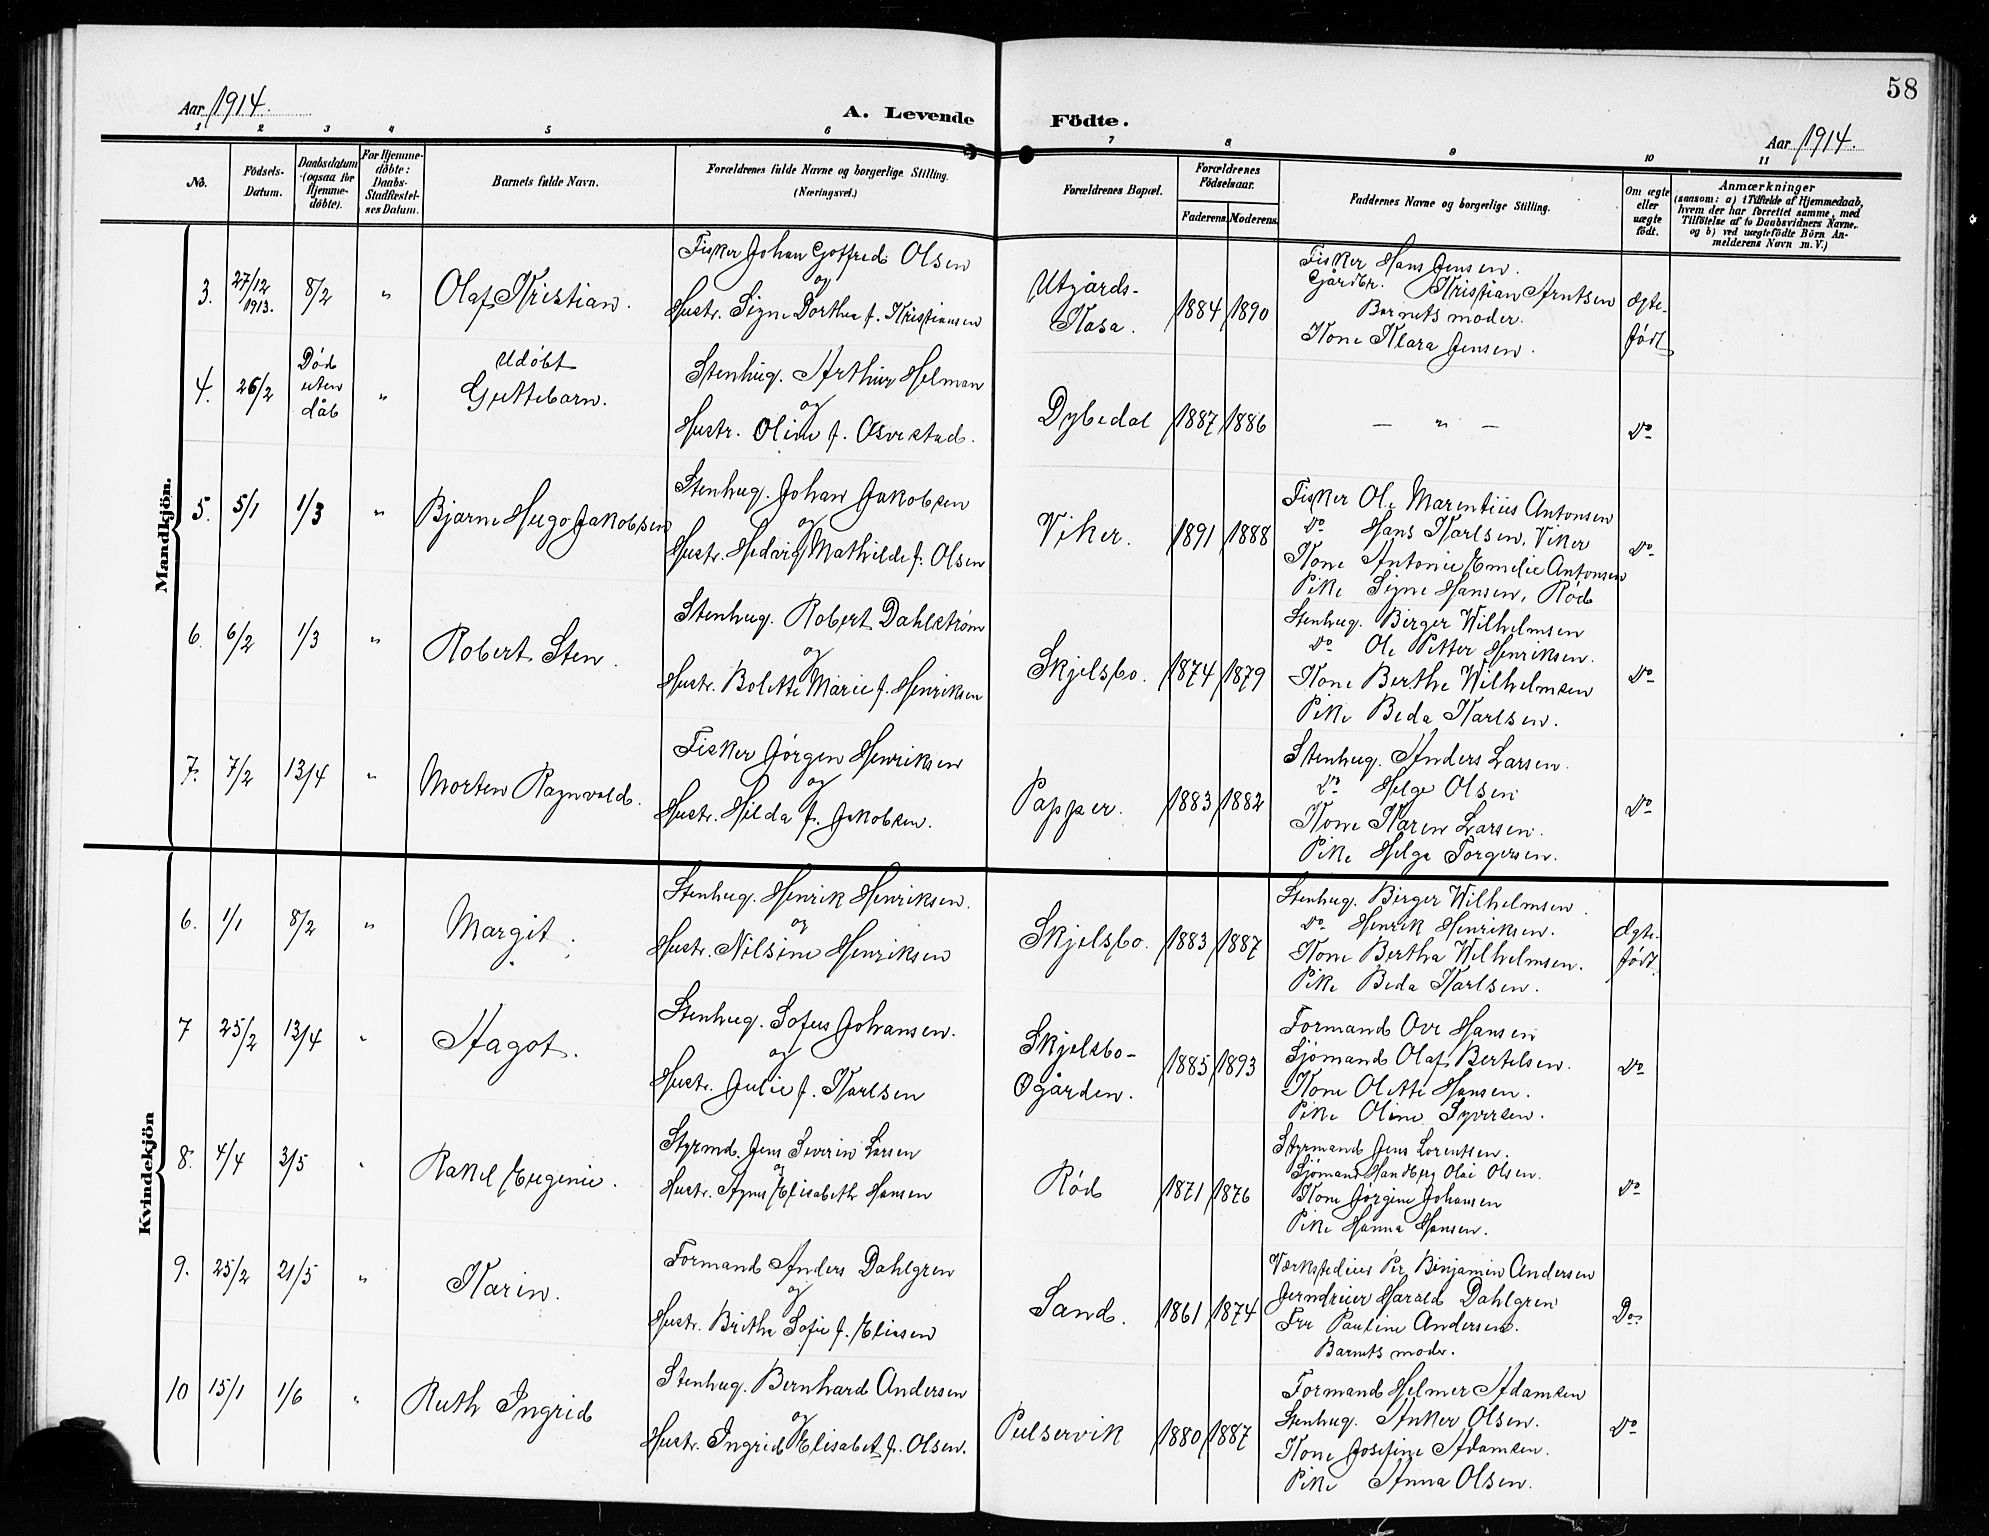 58
Aar 1914.
A. Levende Födte.
Aar 1914.
1 2 3 4 5 6 7 8 9 10 11
No.
Födsels-Datum.
Daabsdatum (ogsaa for Hjemme-döbte).
For Hjemme-döbte: Daabs-Stadfæstel-ses Datum.
Barnets fulde Navn.
Forældrenes fulde Navne og borgerlige Stilling.
(Næringsvei.)
Forældrenes Bopæl.
Forældrenes Födselsaar.
Faderens. Moderens.
Faddernes Navne og borgerlige Stilling.
Om ægte eller uægte födt.
Anmærkninger
(saasom: a) i Tilfælde af Hjemmedaab,
hvem der har forrettet samme, med
Tilföielse af to Daabsvidners Navne,
og b) ved uægtefödte Börn An-
melderens Navn m. V.)
Mandkjön.
3. 27/12 1913. 8/2 " Olaf Kristian.
Fisker Johan Gotfred Olsen
og
Hustr. Signe Dorthea f. Kristiansen
Utgårds-
Kasa.
1884 1890
Fisker Hans Jensen.
Gårdbr. Kristian Arntsen
Barnets moder.
Kone Klara Jensen.
ægte-
født
4. 26/2 Død uten dåb "
Udøbt
Guttebarn.
Stenhug. Arthur Helman
og
Hustr. Oline f. Osvestad.
Dybedal 1887 1886 — " — Do
5. 5/1 1/3 " Bjarne Hugo Jakobsen
Stenhug. Johan Jakobsen
og
Hustr. Hedvig Mathilde f. Olsen
Viker. 1891 1888
Fisker Ole Marentius Antonsen
Do Hans Karlsen, Viker
Kone Antonie Emelie Antonsen
Pike Signe Hansen, Rød
Do
6. 6/2 1/3 " Robert Sten.
Stenhug. Robert Dahlstrøm
og
Hustr. Bolette Marie f. Henriksen
Skjelsbo. 1874 1879
Stenhug. Birger Wilhelmsen
Do Ole Petter Henriksen.
Kone Berthe Wilhelmsen
Pike Beda Karlsen.
Do
7. 7/2 13/4 " Morten Ragnvald.
Fisker Jørgen Henriksen
og
Hustr. Hilda f. Jakobsen.
Papper. 1883 1882
Stenhug. Anders Larsen.
Do Helge Olsen
Kone Karen Larsen.
Pike Helga Torgersen.
Do
Kvindekjön
6. 1/1 8/2 " Margit.
Stenhug. Henrik Henriksen.
og
Hustr. Nilsine Henriksen
Skjelsbo. 1883 1887
Stenhug. Birger Wilhelmsen.
Do Henrik Henriksen.
Kone Bertha Wilhelmsen.
Pike Beda Karlsen.
Ægte-
født.
7 25/2 13/4 " Hagot.
Stenhug. Sofus Johansen.
og
Hustr. Julie f. Karlsen
Skjelsbo-
Øgården.
1885 1893
Formand Ove Hansen
Sjømand Olaf Bertelsen.
Kone Olette Hansen.
Pike Oline Syversen.
Do
8. 4/4 3/5 " Rakel Eugenie.
Styrmd. Jens Severin Larsen
og
Hustr. Agnes Elisabeth Hansen
Rød 1871 1876
Styrmand Jens Lorentsen.
Sjømand Handberg Olai Olsen.
Kone Jørgine Johansen
Pike Hanna Hansen.
Do
9. 25/2 21/5 " Karin.
Formand Anders Dahlgren
og
Hustr. Britha Sofie f. Eliesen
Sand. 1861 1874
Værkstedeier Per Binjamin Andersen
Jerndreier Harald Dahlgren
Fru Pauline Andersen.
Barnets moder.
Do
10 15/1 1/6 " Ruth Ingrid
Stenhug. Bernhard Andersen
og
Hustr. Ingrid Elisabet f. Olsen.
Pulservik 1880 1887
Formand Helmer Adamsen
Stenhug. Anker Olsen.
Kone Josefine Adamsen.
Pike Anna Olsen.
Do